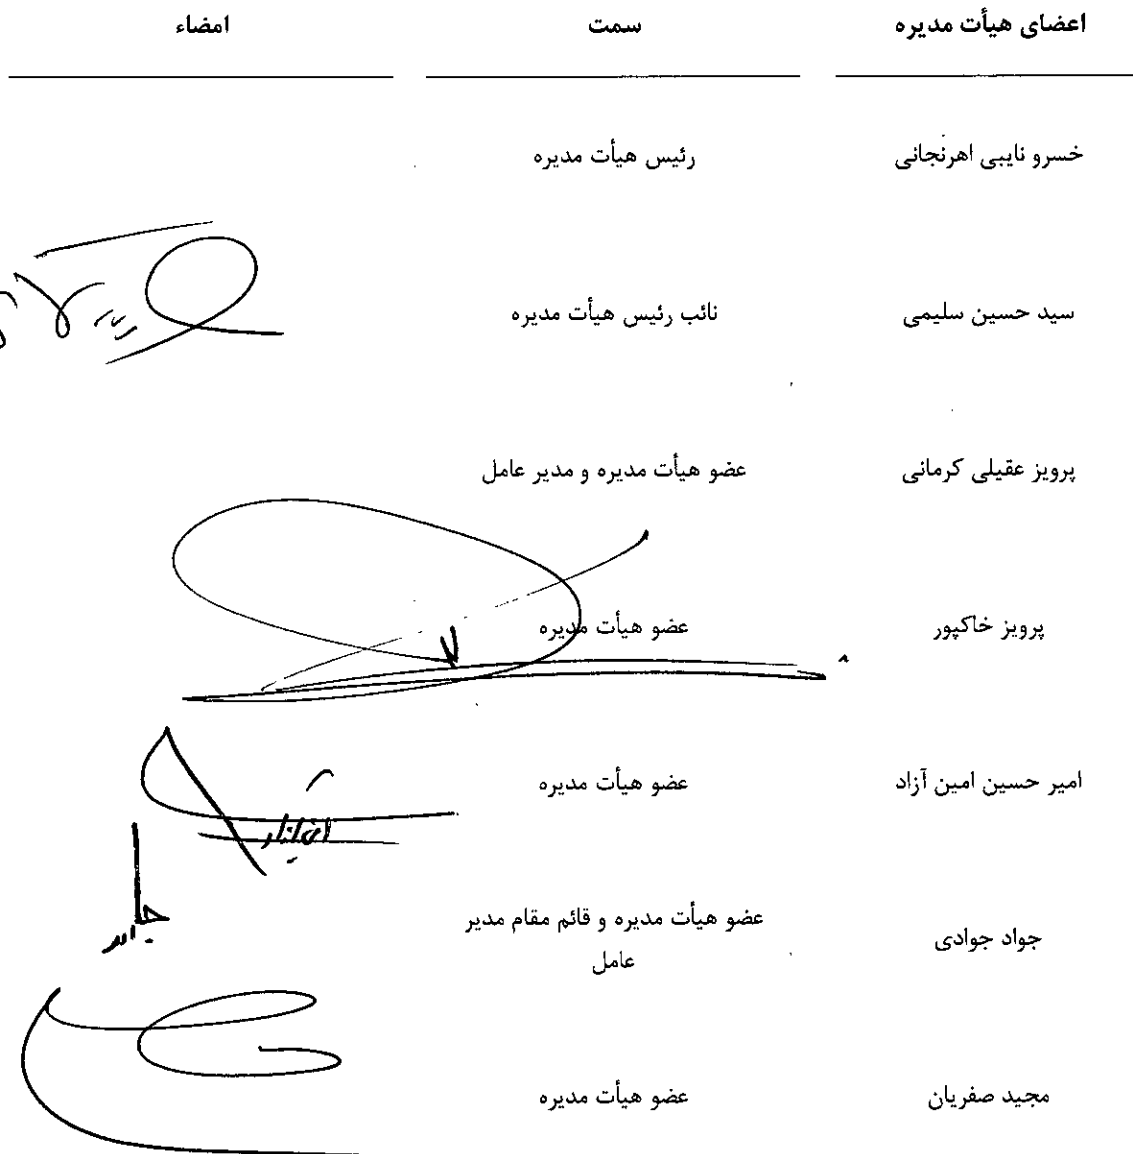 اعضای هیأت مدیره سمت امضاء
خسرو نایبی اهرنجانی رئیس هیأت مدیره
سید حسین سلیمی نائب رئیس هیأت مدیره
پرویز عقیلی کرمانی عضو هیأت مدیره و مدیر عامل
پرویز خاکپور عضو هیأت مدیره
امیر حسین امین آزاد عضو هیأت مدیره
جواد جوادی عضو هیأت مدیره و قائم مقام مدیر
عامل
مجید صفریان عضو هیأت مدیره